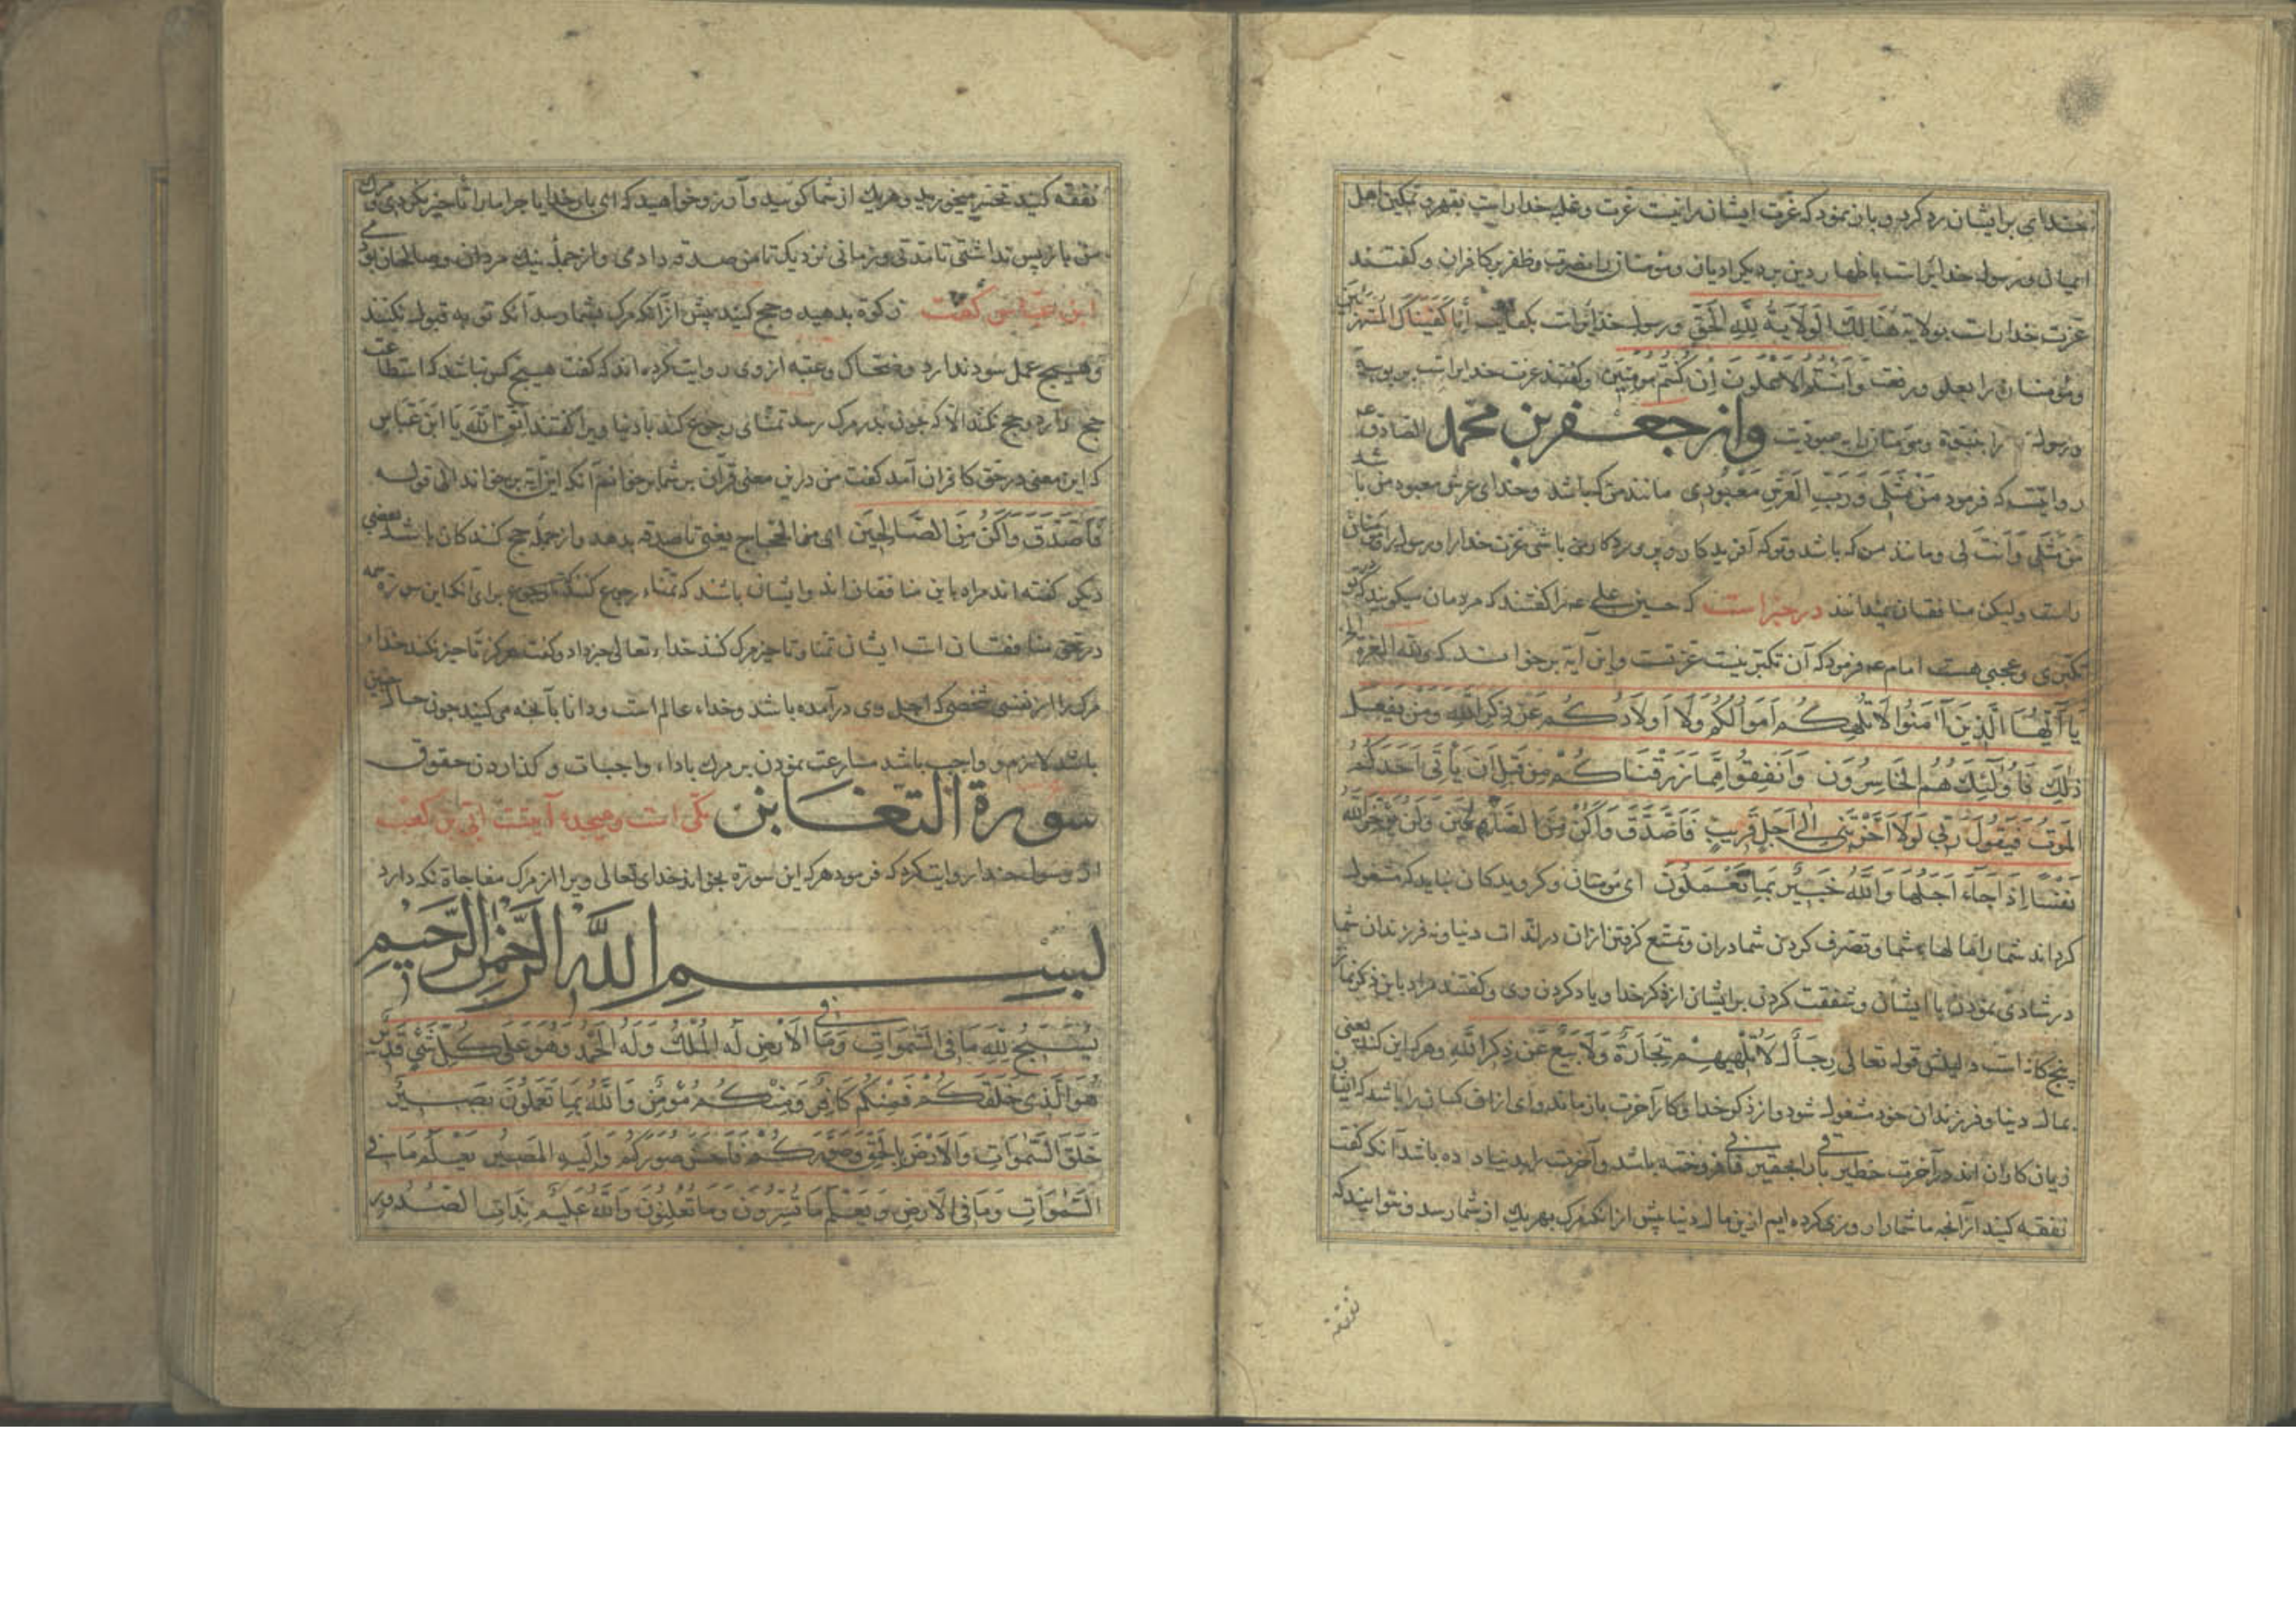 خدای برایشان رد کرد و بیان نمود که عزت ایشان را نیست عزت و غلبه خدا راست بقهر و تمکین اهل
ایمان و رسول خدایراست باظهار دین بر دیگر ادیان و مومنان را بنصرت و ظفر بر کافران و گفتند
عزت خدا راست بولایة هُنَالِكَ الْوَلَايَةُ لِلَّهِ الْحَقِّ و رسول خدایراست بکفایت إِنَّا كَفَيْنَاكَ الْمُسْتَهْزِئِينَ
و مومنان را بعلو و رفعت وَأَنْتُمُ الْأَعْلَوْنَ إِنْ كُنْتُمْ مُؤْمِنِينَ و گفتند عزت خدایراست بربوبیة
و رسول را بنبوة و مومنان را بعبودیت واز جعفر بن محمد الصادق عم
روایتست که فرمود مَنْ مِثْلِي وَرَبُّ الْعَرْشِ مَعْبُودِي مانند من که باشد و خدای عرش معبود من باشد
مَنْ مِثْلِي وَأَنْتَ لِي و مانند من که باشد و تو که آفریدکار و پروردکار منی باشی عزت خدا را و رسول را و مومنان
راست ولیکن منافقان نمیدانند در خبر است که حسین علی عم را گفتند که مردمان میکویند که در تو
تکبری و عجبی هست امام عم فرمود که آن تکبر نیست عزتست و این آیة برخواند که ولله العزة الخ
يَا أَيُّهَا الَّذِينَ آمَنُوا لَا تُلْهِكُمْ أَمْوَالُكُمْ وَلَا أَوْلَادُكُمْ عَنْ ذِكْرِ اللَّهِ وَمَنْ يَفْعَلْ
ذَلِكَ فَأُولَئِكَ هُمُ الْخَاسِرُونَ وَأَنْفِقُوا مِمَّا رَزَقْنَاكُمْ مِنْ قَبْلِ أَنْ يَأْتِيَ أَحَدَكُمُ
الْمَوْتُ فَيَقُولَ رَبِّ لَوْلَا أَخَّرْتَنِي إِلَى أَجَلٍ قَرِيبٍ فَأَصَّدَّقَ وَأَكُنْ مِنَ الصَّالِحِينَ وَلَنْ يُؤَخِّرَ اللَّهُ
نَفْسًا إِذَا جَاءَ أَجَلُهَا وَاللَّهُ خَبِيرٌ بِمَا تَعْمَلُونَ ای مومنان و کرویدکان نباید که مشغول
کرداند شما را مالهاء شما و تصرف کردن شما در آن و تمتع کرفتن از آن در لذات دنیا و نه فرزندان شما
در شادی نمودن با ایشان و شفقت کردن بر ایشان از ذکر خدا و یاد کردن وی و گفتند مراد باین ذکر نماز
پنج کانه است دلیلش قوله تعالی رِجَالٌ لَا تُلْهِيهِمْ تِجَارَةٌ وَلَا بَيْعٌ عَنْ ذِكْرِ اللَّهِ و هر که این کند یعنی
بمال دنیا و فرزندان خود مشغول شود و از ذکر خدا و کار آخرت باز ماند وای از آن کسان را باشد که ایشان
زیان کاران اند در آخرت خطیر باقی را بحقیر فانی فروخته باشد و آخرت را بدنیا داده باشد آنکه گفت
نفقه کنید از آنچه ما شما را روزی کرده ایم از این مال دنیا پیش از آنکه مرک بهر یك از شما رسد و نتوانید که
نفقه
نفقه کنید تحسر میخورید و هر یك از شما کوید و آرزو خواهید که ای بار خدایا چرا ما را تاخیر نکردی و مرک
من باز پس نداشتی تا مدتی و زمانی نزدیک تا من صدقه دادمی و از جمله نیك مردان و صالحان بودمی
ابن عباس گفت زکوة بدهید و حج کنید پیش از آنکه مرک بشما رسد آنکه توبه قبول نکنند
و هیچ عمل سود ندارد و ضحاک و عتبه از وی روایت کرده اند که گفت هیچ کس نباشد که استطاعت
حج دارد و حج نکند الا که چون بدر مرک رسد تمنای رجوع کند با دنیا ویرا گفتند اتق الله یا ابن عباس
که این معنی در حق کافران آمد گفت من در این معنی قرآن بر شما برخوانم آنکه این آیة برخواند الی قوله
فَأَصَّدَّقَ وَأَكُنْ مِنَ الصَّالِحِينَ ای من الحجاج یعنی تا صدقه بدهد و از جمله حج کنندکان باشد بعضی
دیکر گفته اند مراد باین منافقان اند و ایشان باشند که تمناء رجوع کنند برای آنکه این سورة همه
در حق منافقان است ایشان تمناء تاخیر مرک کنند خداء تعالی خبر داد و گفت هرکز تاخیر نکند خداء
مرک را از نفسی شخصی که اجل وی در آمده باشد و خداء عالم است و دانا بآنچه می کنید چون حال چنین
باشد لازم و واجب باشد مسارعت نمودن بر مرك باداء واجبات و کذاردن حقوق
سورة التغابن مکی است و هیجده آیتست ابی بن کعب
از رسول خدا روایت کرد که فرمود هر که این سورة بخواند خدای تعالی ویرا از مرک مفاجاة نکه دارد
بسم الله الرحمن الرحیم
يُسَبِّحُ لِلَّهِ مَا فِي السَّمَوَاتِ وَمَا فِي الْأَرْضِ لَهُ الْمُلْكُ وَلَهُ الْحَمْدُ وَهُوَ عَلَى كُلِّ شَيْءٍ قَدِيرٌ
هُوَ الَّذِي خَلَقَكُمْ فَمِنْكُمْ كَافِرٌ وَمِنْكُمْ مُؤْمِنٌ وَاللَّهُ بِمَا تَعْمَلُونَ بَصِيرٌ
خَلَقَ السَّمَوَاتِ وَالْأَرْضَ بِالْحَقِّ وَصَوَّرَكُمْ فَأَحْسَنَ صُوَرَكُمْ وَإِلَيْهِ الْمَصِيرُ يَعْلَمُ مَا فِي
السَّمَوَاتِ وَمَا فِي الْأَرْضِ وَيَعْلَمُ مَا تُسِرُّونَ وَمَا تُعْلِنُونَ وَاللَّهُ عَلِيمٌ بِذَاتِ الصُّدُورِ